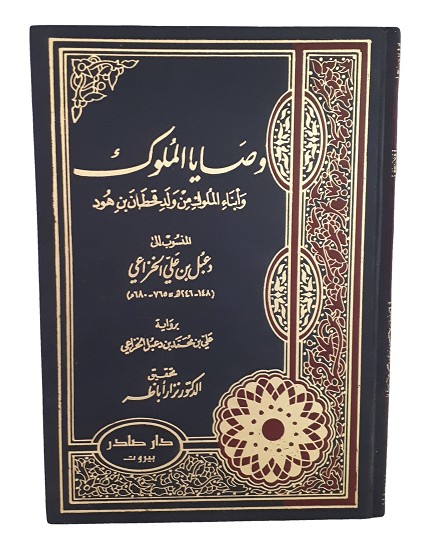 وصايا الملوك
وأبناء الملوك من ولد قحطان بن هود
المنسوب إلى
دعبل بن علي الخزاعي
(١٤٨-٢٤٦هـ = ٧٦٥-٦٨٠م)
برواية
علي بن محمد بن دعبل الخزاعي
تحقيق
الدكتور نزار أباظه
دار صادر
بيروت